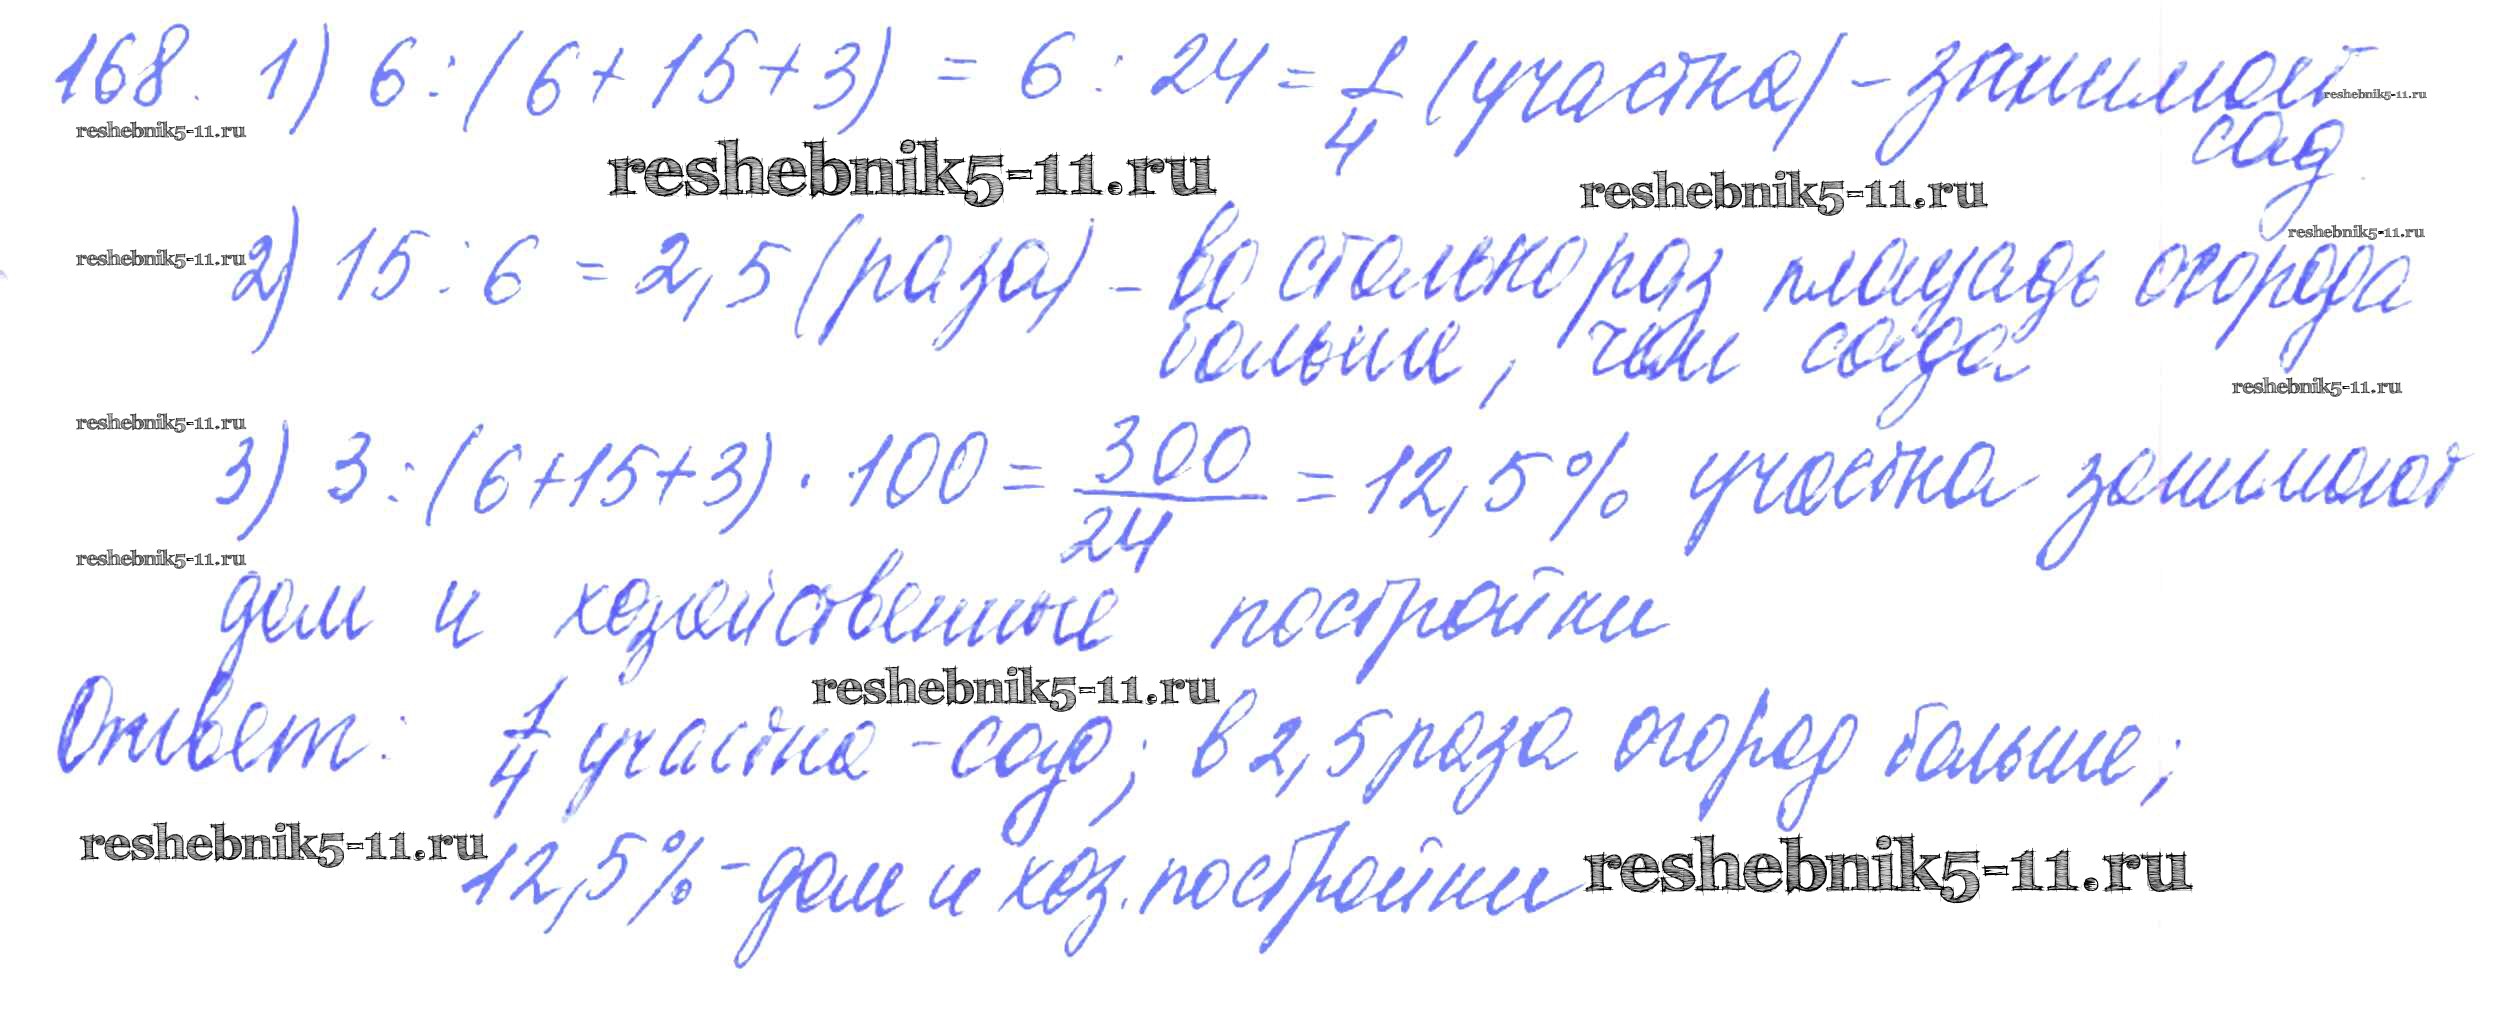 168. 1) 6 : (6 + 15 + 3) = 6 : 24 = 1/4 (участка) - занимает
reshebnik5-11.ru
reshebnik5-11.ru
сад.
reshebnik5-11.ru
reshebnik5-11.ru
2) 15 : 6 = 2,5 (раза) - во столько раз площадь огорода
reshebnik5-11.ru
reshebnik5-11.ru
больше, чем сада
reshebnik5-11.ru
reshebnik5-11.ru
3) 3 : (6+15+3) · 100 = 300/24 = 12,5% участка занимают
reshebnik5-11.ru
дом и хозяйственные постройки
reshebnik5-11.ru
Ответ: 1/4 участка - сад; в 2,5 раза огород больше;
reshebnik5-11.ru
12,5% - дом и хоз. постройки
reshebnik5-11.ru